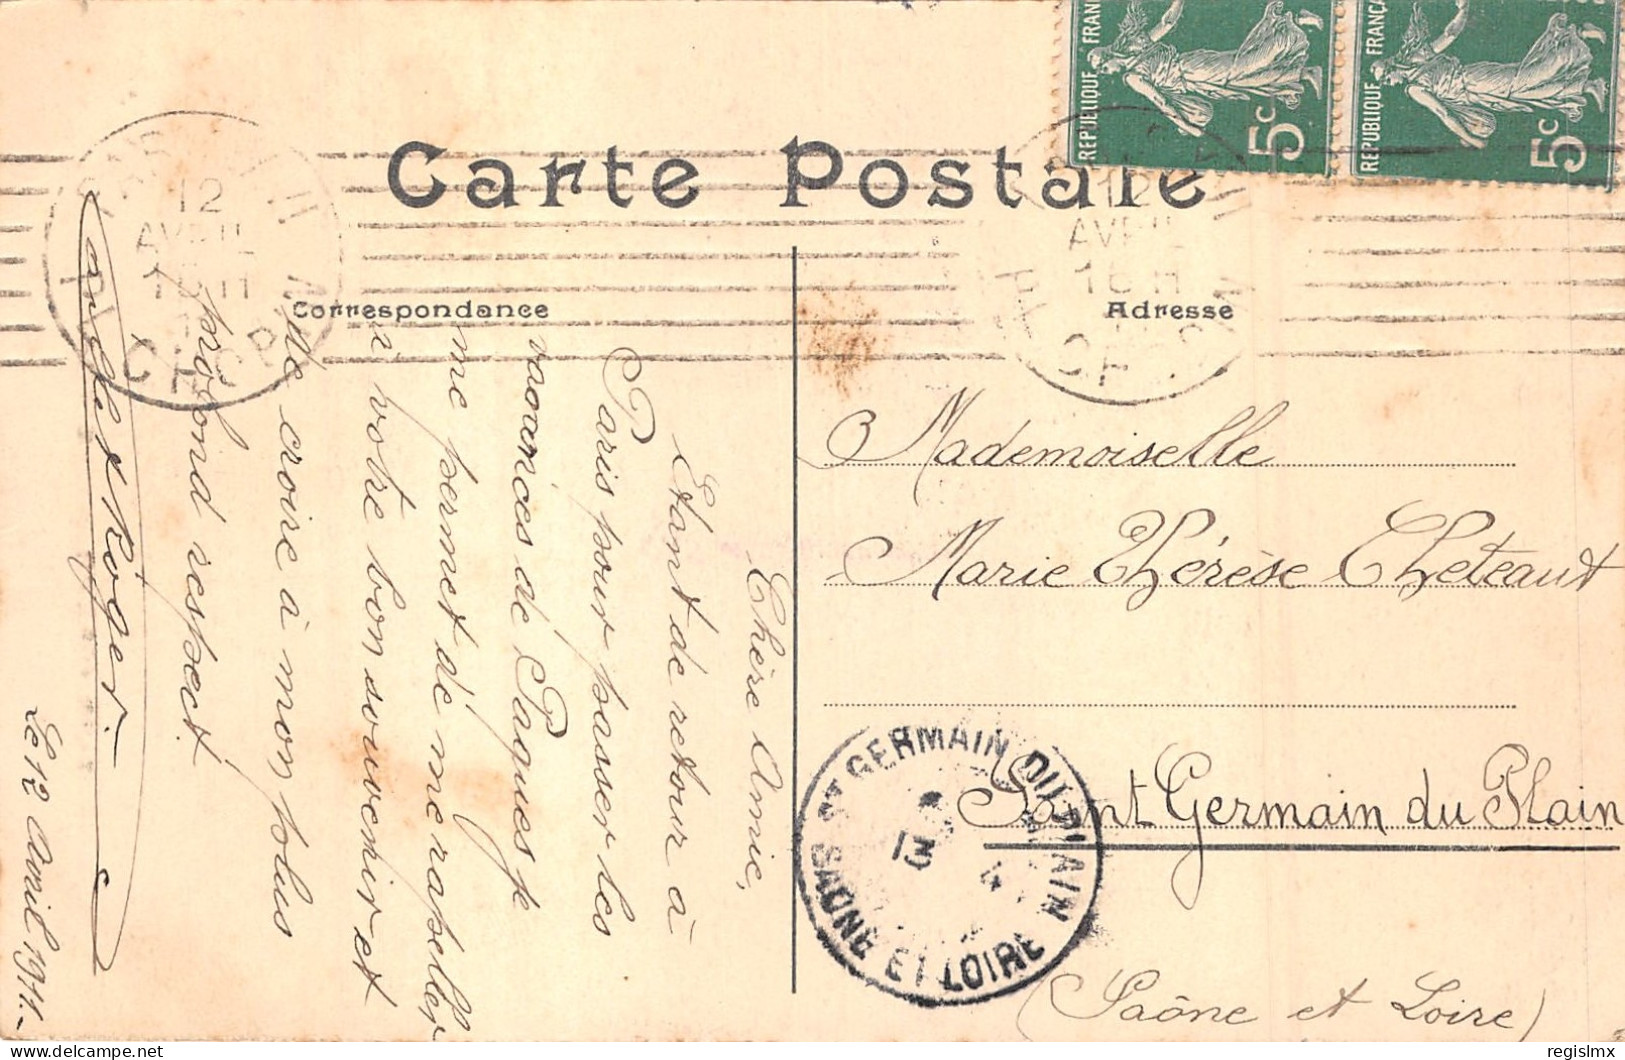 Carte Postale
Correspondance
Adresse
REPUBLIQUE FRAN
5c
REPUBLIQUE FRANÇA
5c
12
AVRIL
12
AVRIL
16 H
Chère Amie,
Etant de retour à
Paris pour passer les
vacances de Pâques je
me permet de me rappeller
à votre bon souvenir et
de croire à mon plus
profond respect.
Le 12 Avril 1911.-
Mademoiselle
Marie Thérèse Cheteaut
Saint Germain du Plain
(Saône et Loire)
ST GERMAIN DU PLAIN
13 4
SAONE ET LOIRE
regislmx